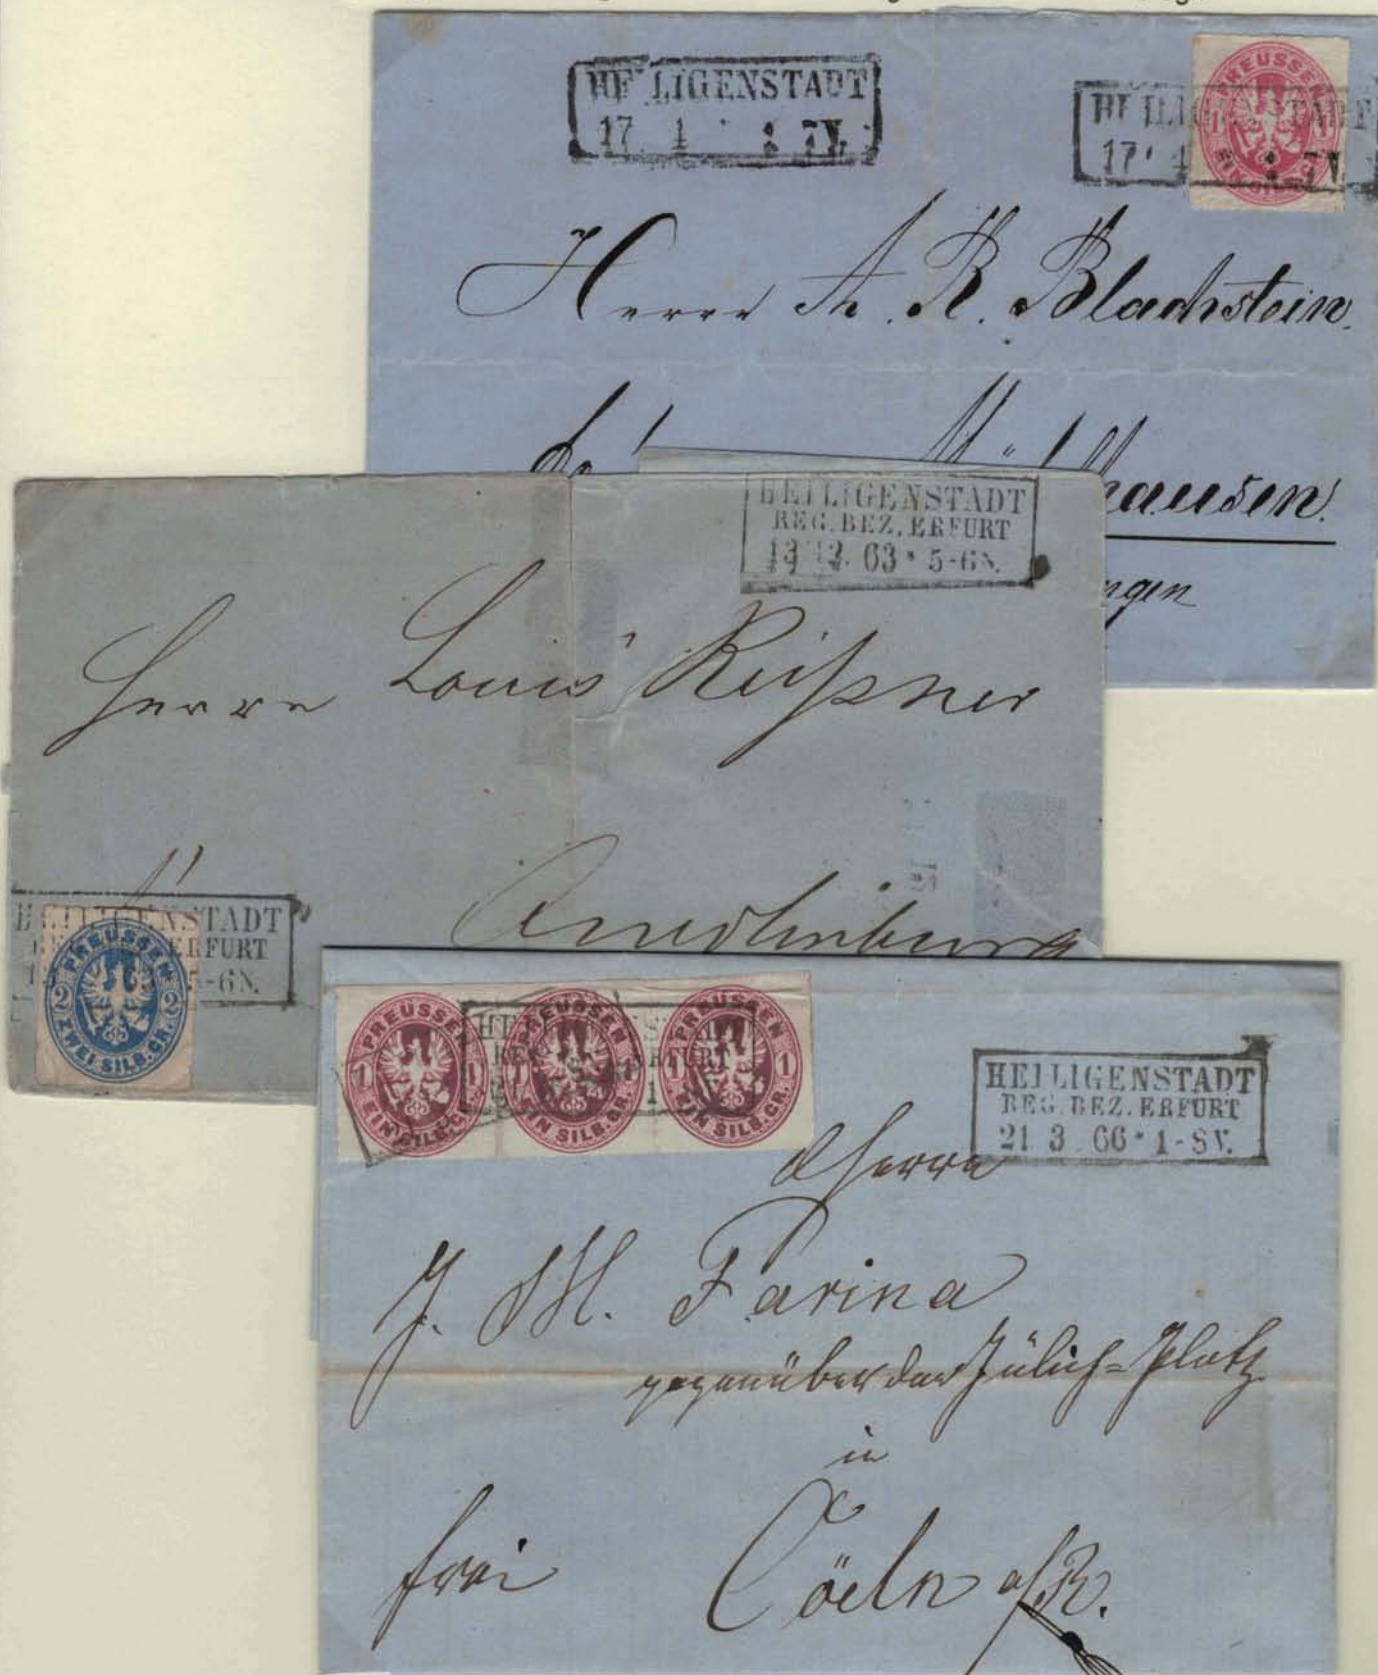 HEILIGENSTADT
17 1 * 7V.
HEILIGENSTADT
17 1 * 7V.
PREUSSEN
1 1
EIN SILB.GR.
Herrn A. R. Blachstein.
hausen.
ngen
HEILIGENSTADT
REG. BEZ. ERFURT
13 12. 63 * 5-6N.
Herrn Louis Reißner
Quedlinburg
HEILIGENSTADT
REG. BEZ. ERFURT
5-6N.
PREUSSEN
2 2
ZWEI SILB.GR.
PREUSSEN
1 1
EIN SILB.GR.
PREUSSEN
1 1
EIN SILB.GR.
PREUSSEN
1 1
EIN SILB.GR.
HEILIGENSTADT
REG. BEZ. ERFURT
HEILIGENSTADT
REG. BEZ. ERFURT
21 3 66 * 1-8V.
Herrn
J. M. Farina
gegenüber der Jülich=Platz
in
frei Cöeln a/R.